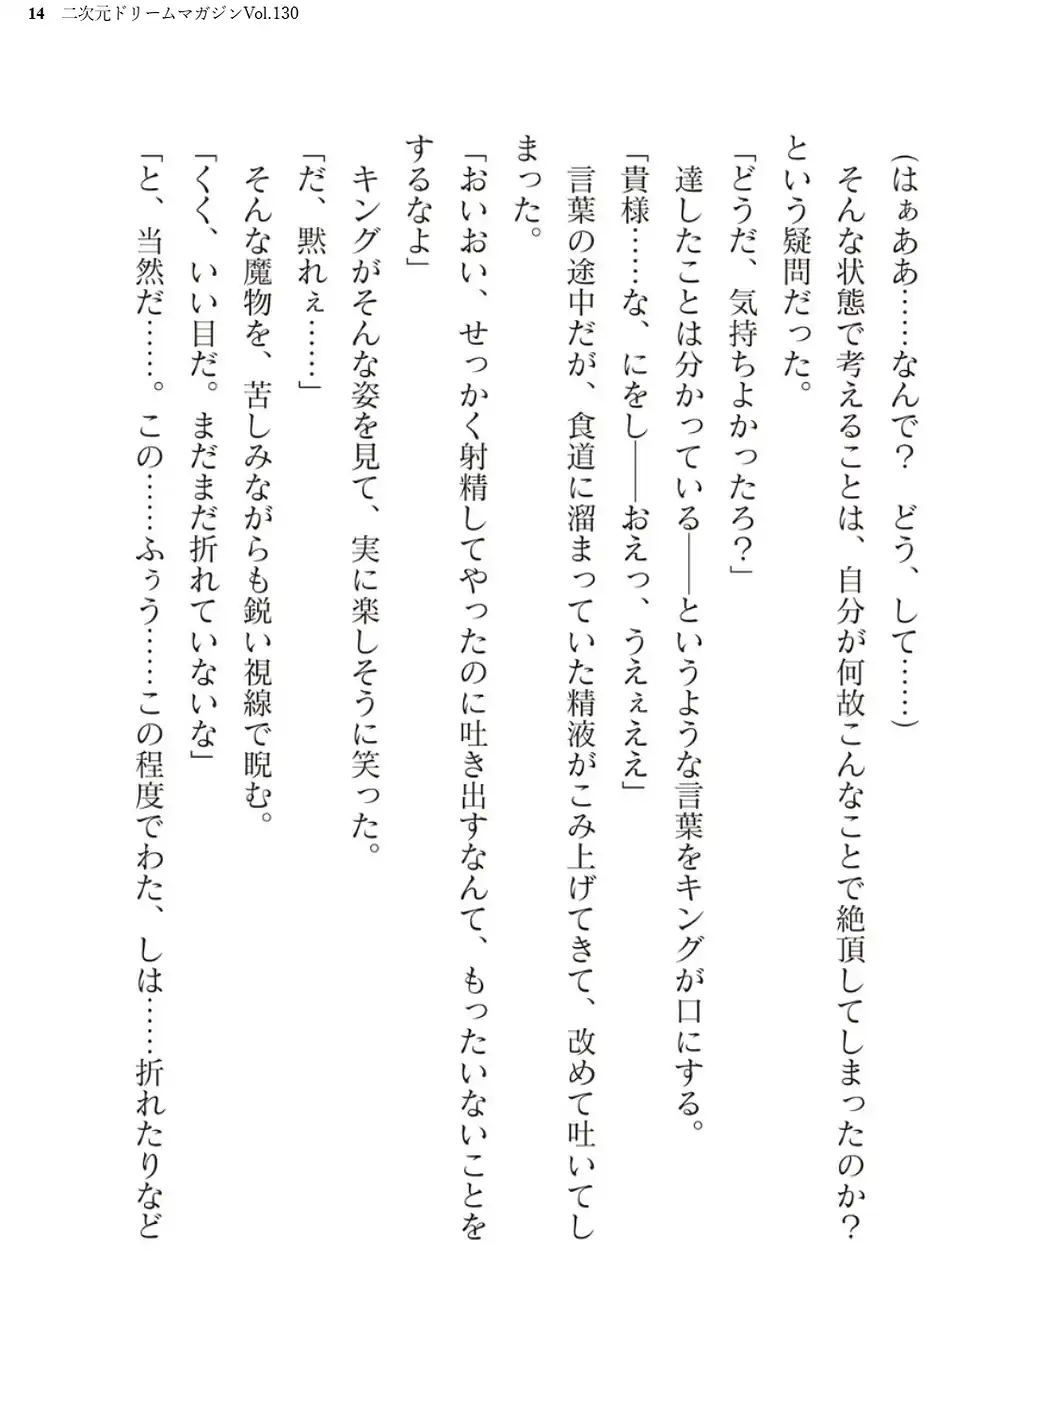 14 二次元ドリームマガジンVol.130
(はぁああ……なんで？　どう、して……)
　そんな状態で考えることは、自分が何故こんなことで絶頂してしまったのか？
という疑問だった。
「どうだ、気持ちよかったろ？」
　達したことは分かっている――というような言葉をキングが口にする。
「貴様……な、にをし――おえっ、うえぇええ」
　言葉の途中だが、食道に溜まっていた精液がこみ上げてきて、改めて吐いてし
まった。
「おいおい、せっかく射精してやったのに吐き出すなんて、もったいないことを
するなよ」
　キングがそんな姿を見て、実に楽しそうに笑った。
「だ、黙れぇ……」
　そんな魔物を、苦しみながらも鋭い視線で睨む。
「くく、いい目だ。まだまだ折れていないな」
「と、当然だ……。この……ふぅう……この程度でわた、しは……折れたりなど